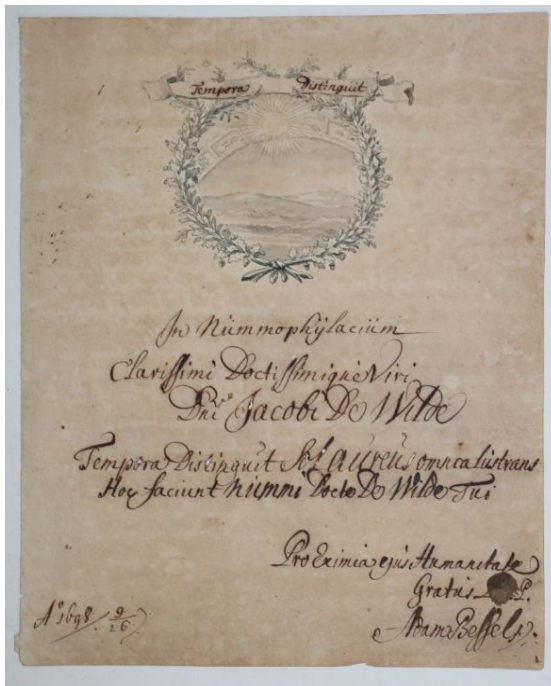 Tempora Distinguit
In Nummophylacium
Clarissimi Doctissimique Viri
Dni Jacobi De Wilde
Tempora Distinguit Sol aureus omnia lustrans
Hoc faciunt nummi Docte De Wilde Tui
Pro Eximia ejus Humanitate
Gratus P.
Adam Bessels
Aº 1698 9/26